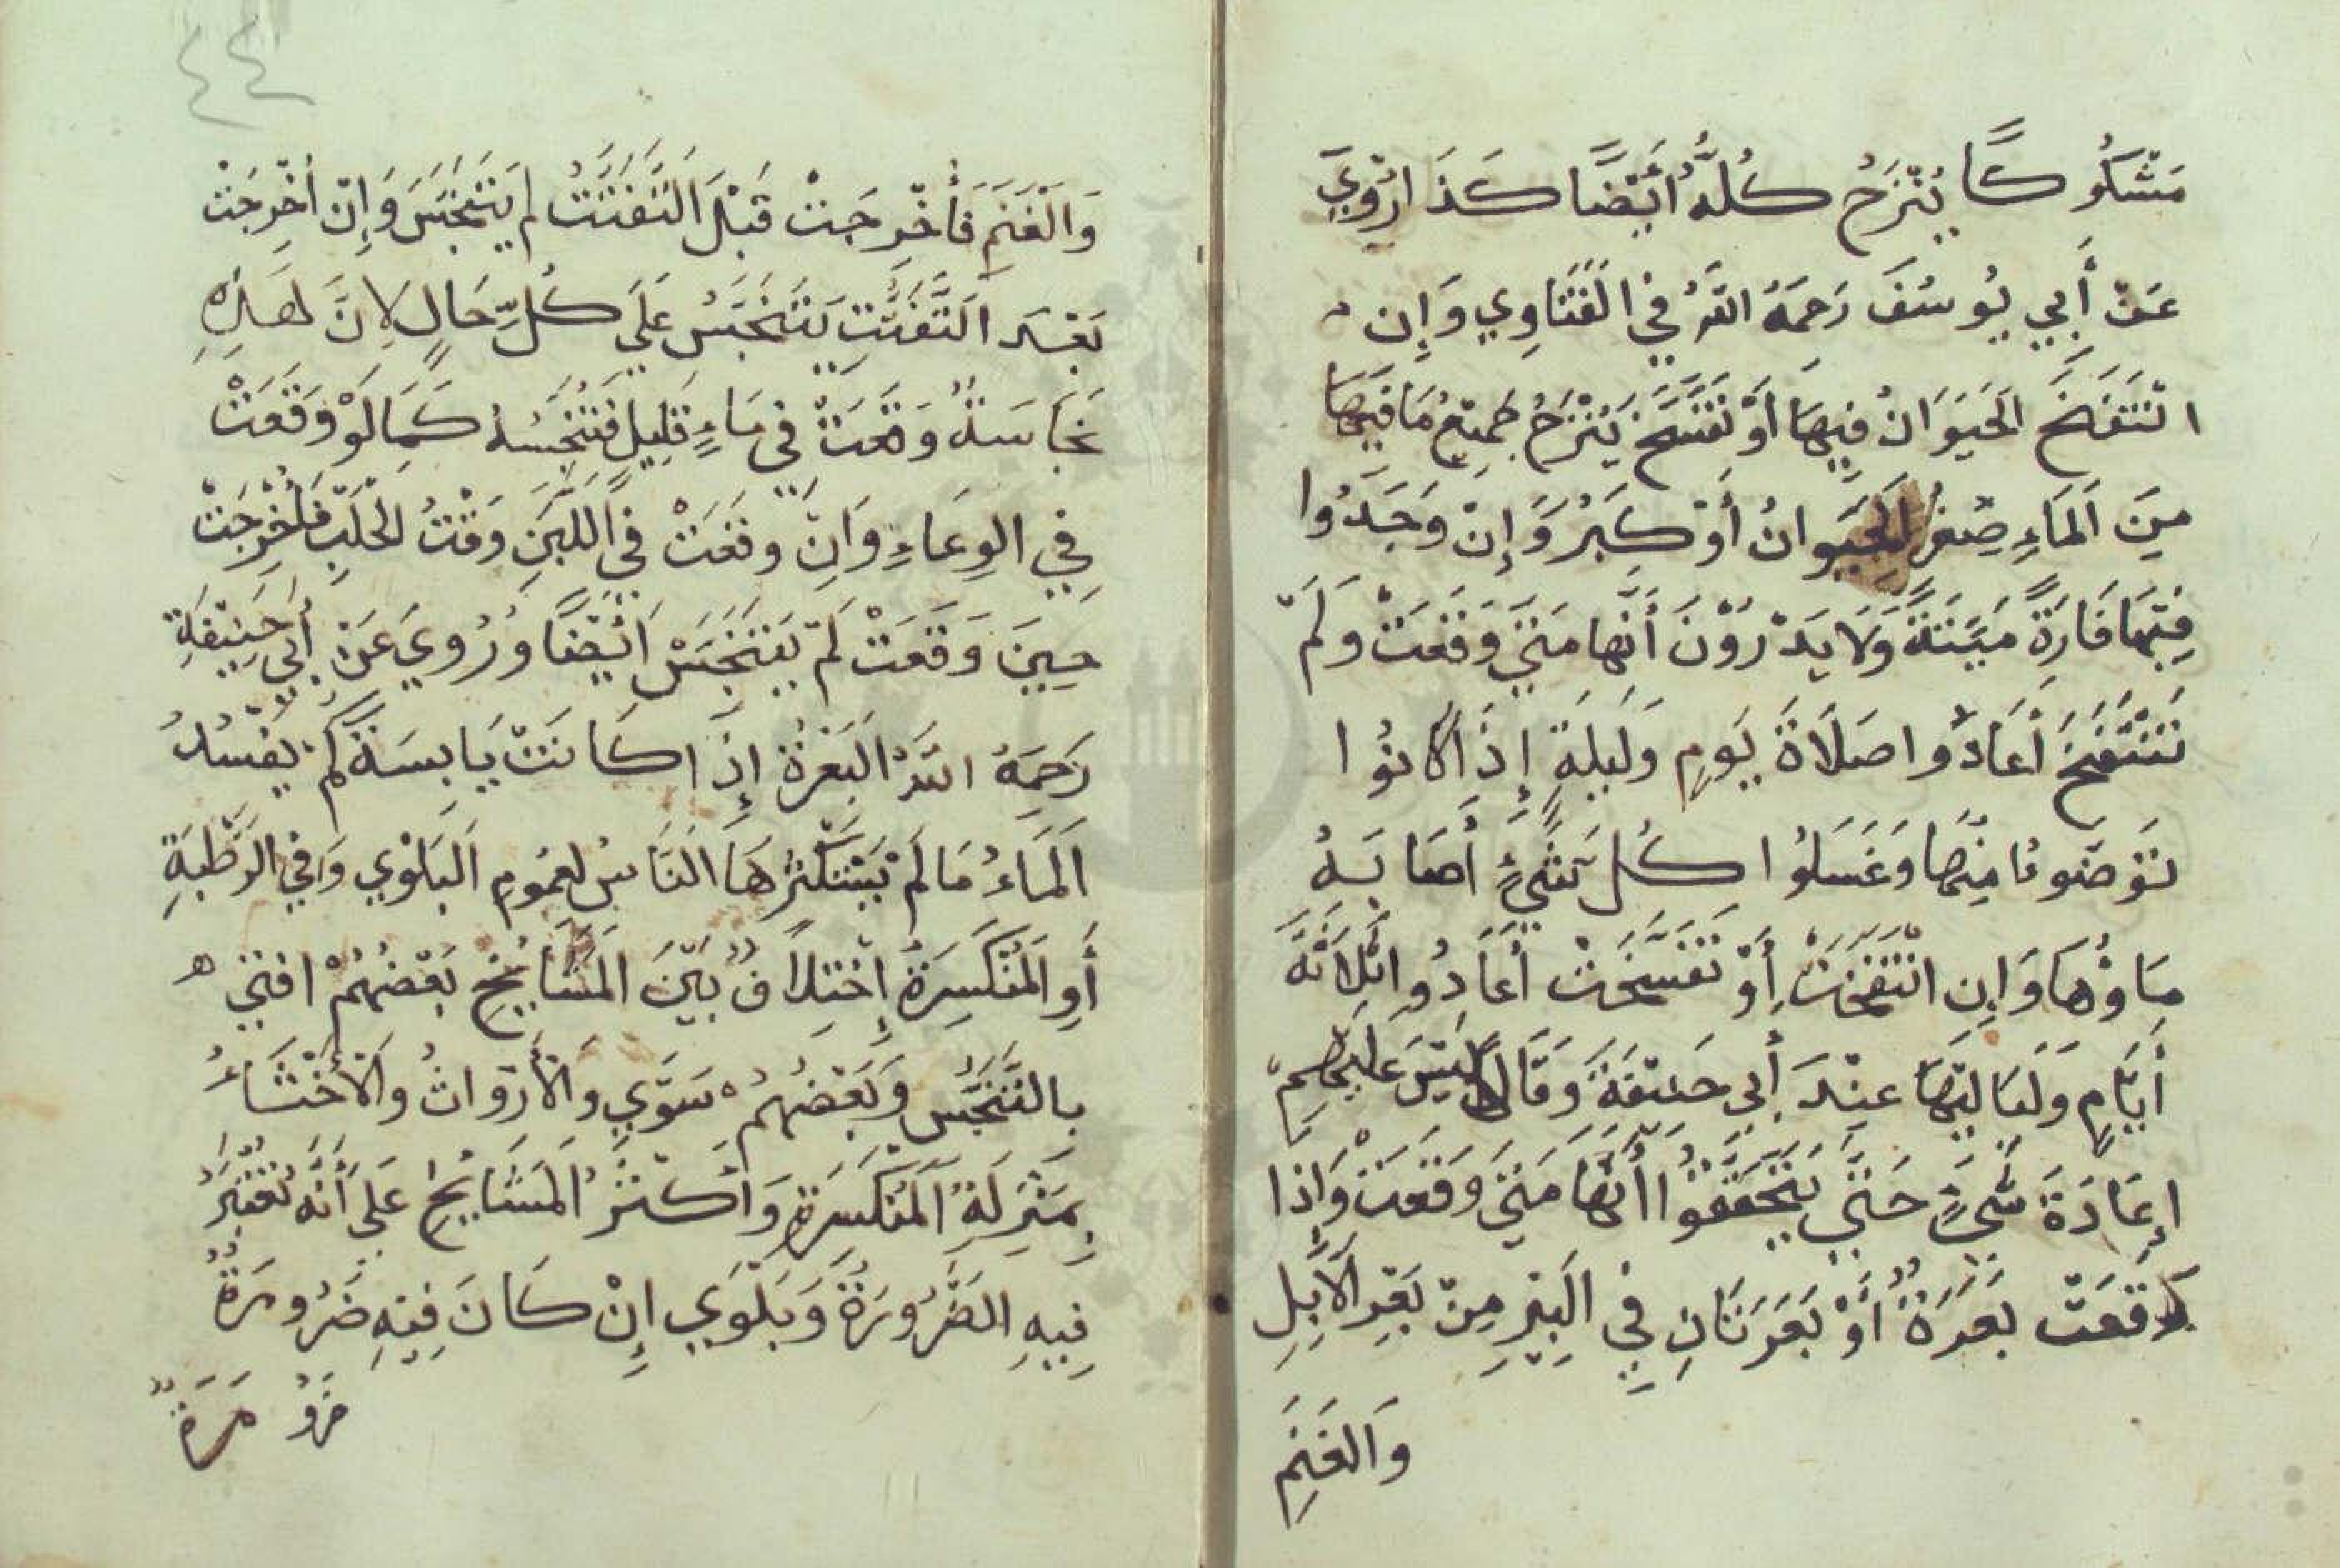 مَشْكُوكًا يُنْزَحُ كُلُّهُ أَيْضًا كَذَا رُوِيَ
عَنْ أَبِي يُوسُفَ رَحِمَهُ اللَّهُ فِي الْفَتَاوِي وَإِنِ
انْتَفَخَ الْحَيَوَانُ فِيهَا أَوْ تَفَسَّخَ يُنْزَحُ جَمِيعُ مَا فِيهَا
مِنَ الْمَاءِ صَغُرَ الْحَيَوَانُ أَوْ كَبُرَ وَإِنْ وَجَدُوا
فِيهَا فَارَةً مَيْتَةً وَلَا يَدْرُونَ أَنَّهَا مَتَى وَقَعَتْ وَلَمْ
تَنْتَفِخْ أَعَادُوا صَلَاةَ يَوْمٍ وَلَيْلَةٍ إِذَا كَانُوا
تَوَضَّوُا مِنْهَا وَغَسَلُوا كُلَّ شَيْءٍ أَصَابَهُ
مَاؤُهَا وَإِنِ انْتَفَخَتْ أَوْ تَفَسَّخَتْ أَعَادُوا ثَلَاثَةَ
أَيَّامٍ وَلَيَالِيهَا عِنْدَ أَبِي حَنِيفَةَ وَقَالَا لَيْسَ عَلَيْهِمْ
إِعَادَةَ شَيْءٍ حَتَّى يَتَحَقَّقُوا أَنَّهَا مَتَى وَقَعَتْ وَإِذَا
وَقَعَتْ بَعْرَةٌ أَوْ بَعْرَتَانِ فِي الْبِئْرِ مِنْ بَعْرِ الْإِبِلِ
وَالْغَنَمِ
٤٤
وَالْغَنَمِ فَأُخْرِجَتْ قَبْلَ التَّفَتُّتِ لَمْ يَتَنَجَّسْ وَإِنْ أُخْرِجَتْ
بَعْدَ التَّفَتُّتِ يَتَنَجَّسُ عَلَى كُلِّ حَالٍ لِأَنَّ هَذِهِ
نَجَاسَةٌ وَقَعَتْ فِي مَاءٍ قَلِيلٍ فَتُنَجِّسُهُ كَمَا لَوْ وَقَعَتْ
فِي الْوِعَاءِ وَإِنْ وَقَعَتْ فِي اللَّبَنِ وَقْتُ الْحَلْبِ فَأُخْرِجَتْ
حِينَ وَقَعَتْ لَمْ يَتَنَجَّسْ أَيْضًا وَرُوِيَ عَنْ أَبِي حَنِيفَةَ
رَحِمَهُ اللَّهُ الْبَعْرَةُ إِذَا كَانَتْ يَابِسَةً لَمْ يَفْسُدُ
الْمَاءُ مَا لَمْ يَسْتَكْثِرْهَا النَّاسُ لِعُمُومِ الْبَلْوِي وَفِي الرَّطْبَةِ
أَوِ الْمُنْكَسِرَةِ اخْتِلَافٌ بَيْنَ الْمَشَايِخِ بَعْضُهُمْ افْتَى
بِالتَّنَجُّسِ وَبَعْضُهُمْ سَوَّي وَالْأَرْوَاثُ وَالْأَخْثَاءُ
بِمَنْزِلَةِ الْمُنْكَسِرَةِ وَأَكْثَرُ الْمَشَايِخِ عَلَى أَنَّهُ تُعْتَبَرُ
فِيهِ الضَّرُورَةُ وَبَلْوَي إِنْ كَانَ فِيهِ ضَرُورَةٌ